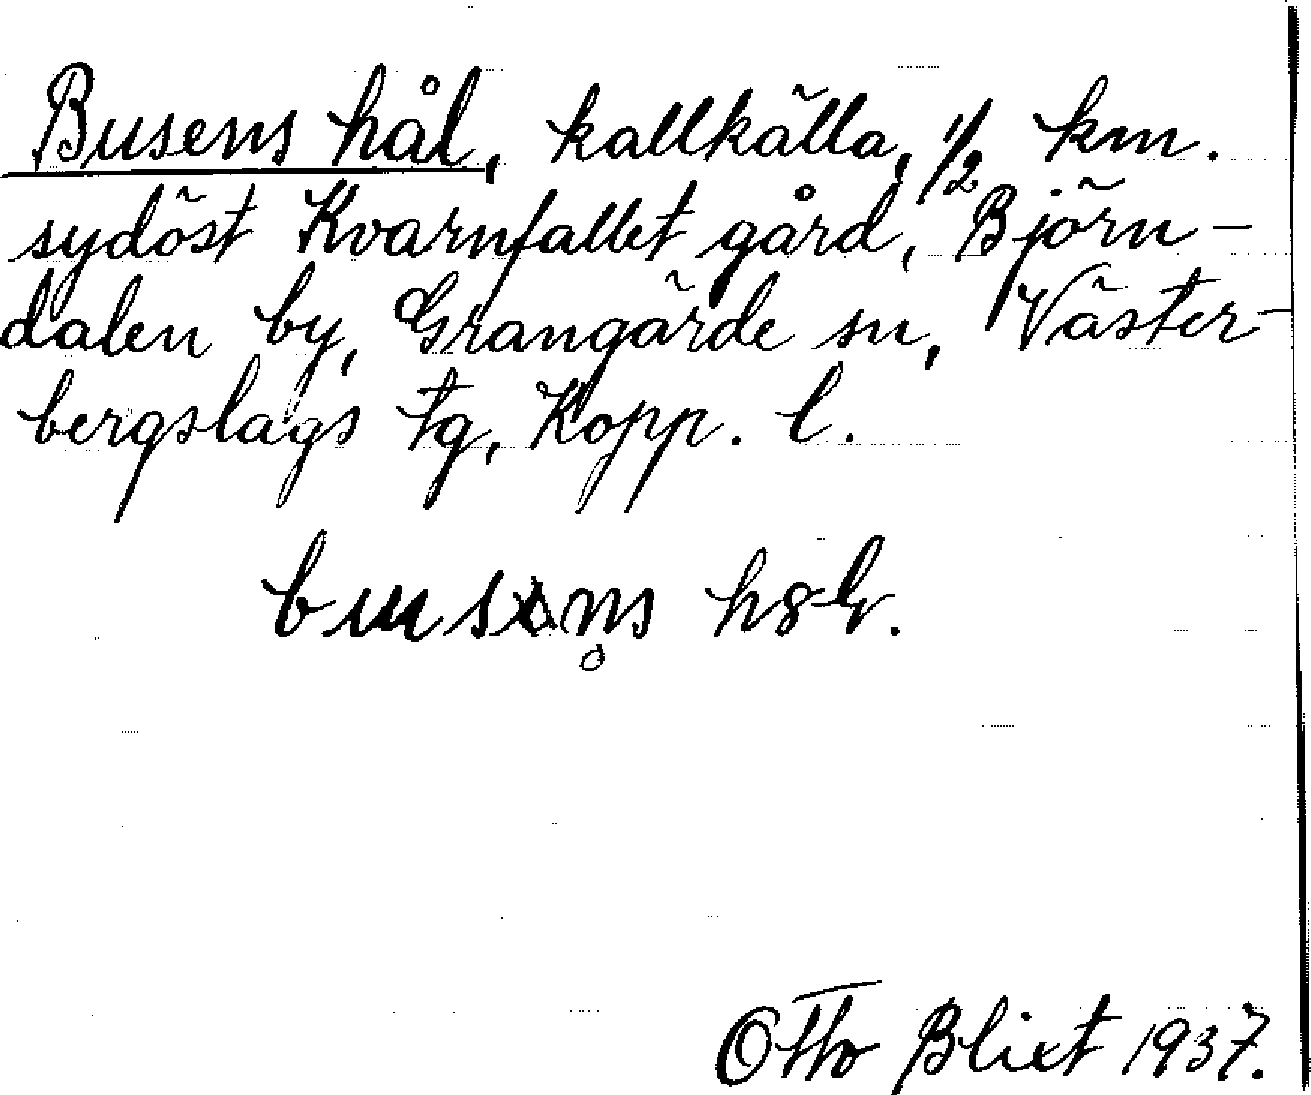 Busens hål, kallkälla, 1/2 km.
sydöst Kvarnfallet gård, Björn-
dalen by, Grangärde sn, Väster-
bergslags tg, Kopp. l.
Otto Blixt 1937.